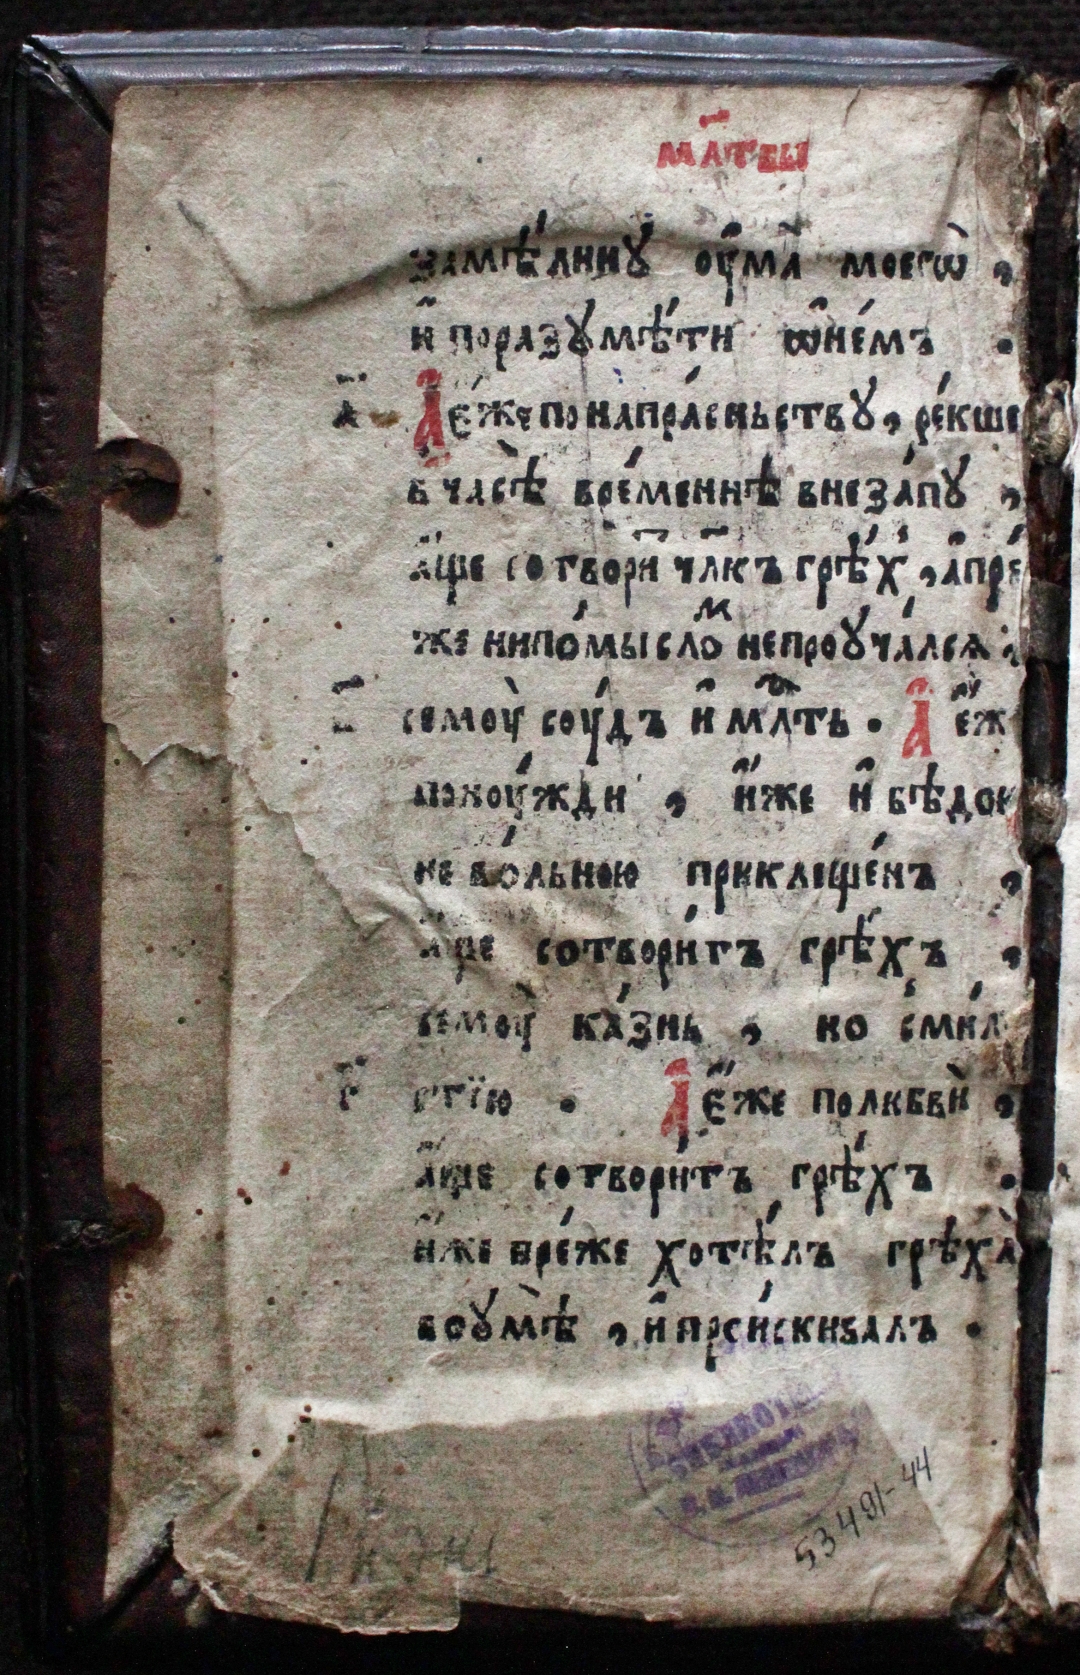 мл҃твы
замѣ́лнїꙋ ᲂу҆ма̀ моегѡ̀ ,
и҆ поразꙋмѣ́ти ѡ҆не́мъ .
а҃ А҆ є҆́же по напра́сньствꙋ , ре́кше
в часѣ̀ вре́меннѣ внеза́пꙋ ,
а҆́ще сотвори чл҃къ грѣ́х , а҆пре́
же ни по́мысломъ непроꙋча́лся ,
в҃ семоу̀ соу́дъ и҆ мл҃ть . А҆ є҆́ж
по ноу́жди , и҆́же и҆ бѣдою
не во́льною приклюще́нъ ,
а҆́ще сотвори́тъ грѣ́хъ ,
семоу̀ ка́знь , но с ми́л
г҃ стїю . А҆ є҆́же полюбви̂ ,
а҆́ще сотвори́тъ грѣ́хъ .
и҆́же пре́же хотѣ́лъ грѣха̀
во ꙋмѣ̀ , и҆ при́скивалъ .
БИБЛИОТЕКА
53491-44